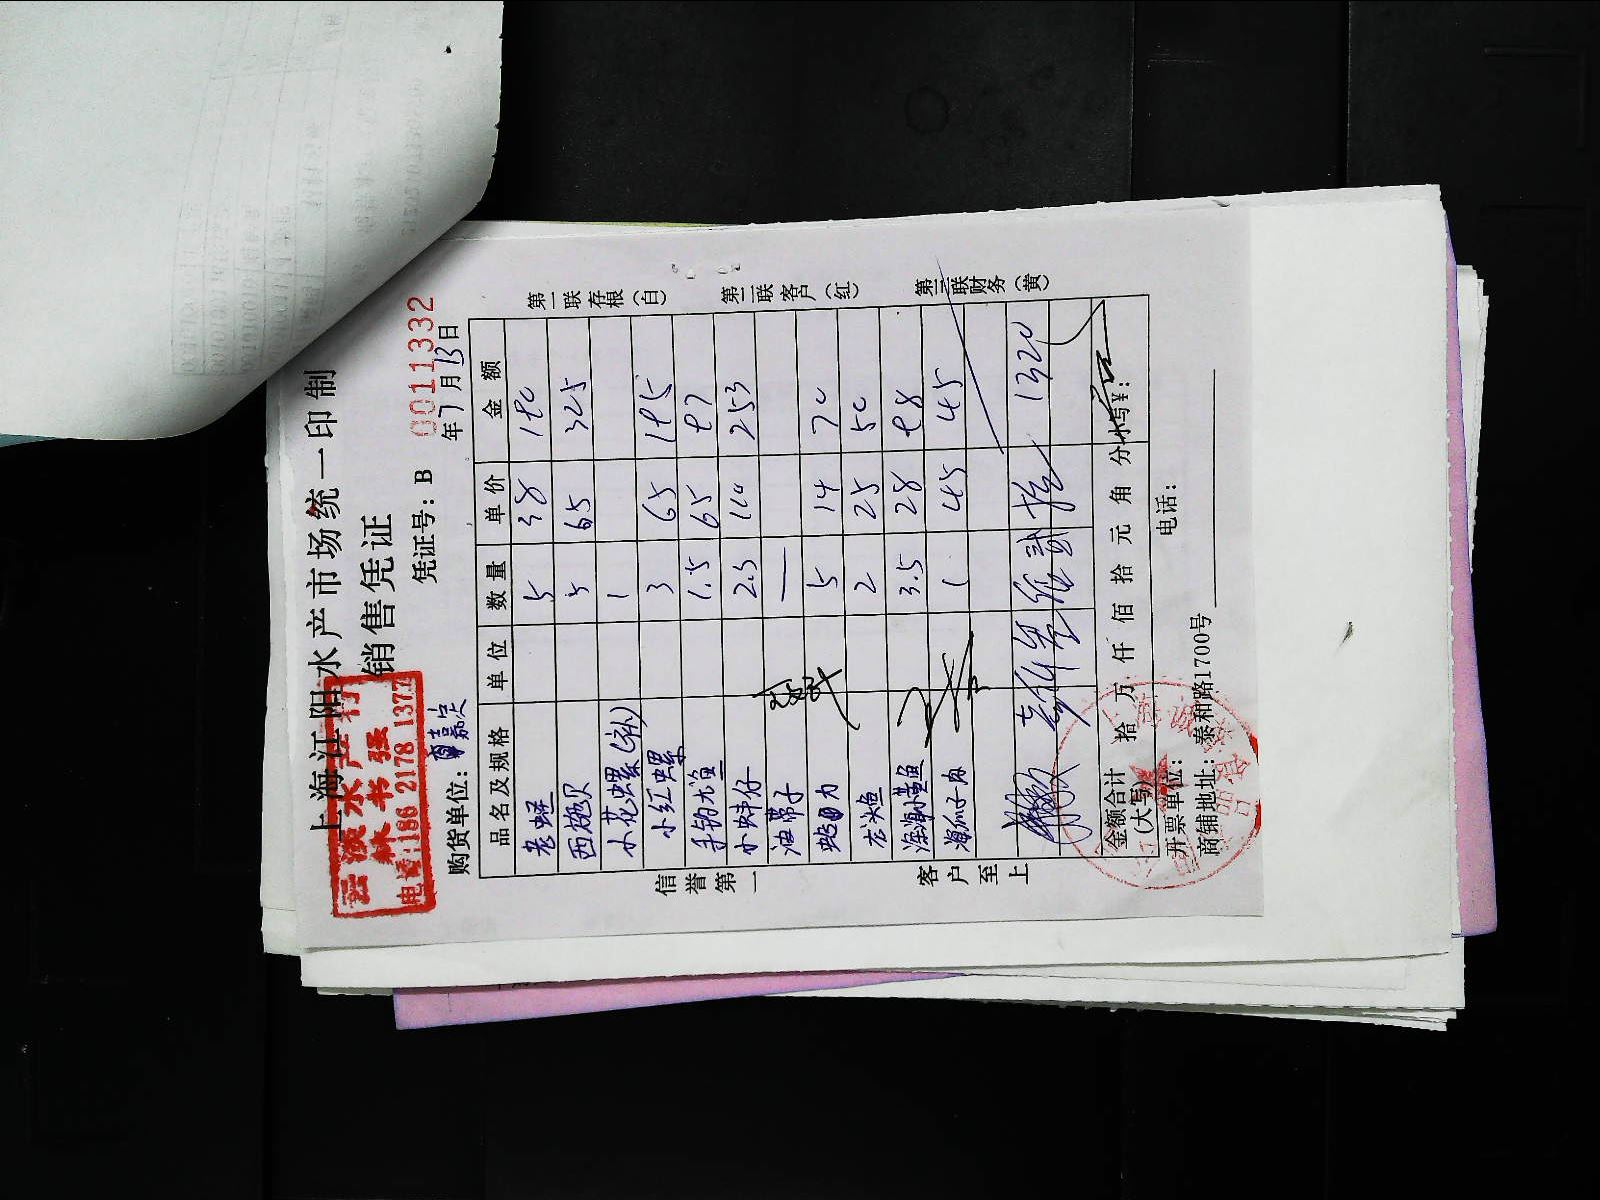 上海江阳水产市场统一印制
销售凭证
凭证号：B 0011332
水产行
林书强
电话:186 2178 137
购货单位：嘉定
年7月13日
品名及规格 单位 数量 单价 金额
老蛏 5 38 180
西施贝 5 65 325
小花螺(补) 1
小红螺 3 65 195
手钓尤鱼 1.5 65 97
小蚌仔 2.3 110 253
油带子
蛤 5 14 70
龙头鱼 2 25 50
黄鱼 3.5 28 98
海瓜子 1 45 45
壹仟叁佰贰拾 1320
金额合计(大写) 拾万仟佰拾元角分 小写￥：
开票单位： 电话：
商铺地址：泰和路1700号
信誉第一
客户至上
第一联存根（白）
第二联客户（红）
第三联财务（黄）